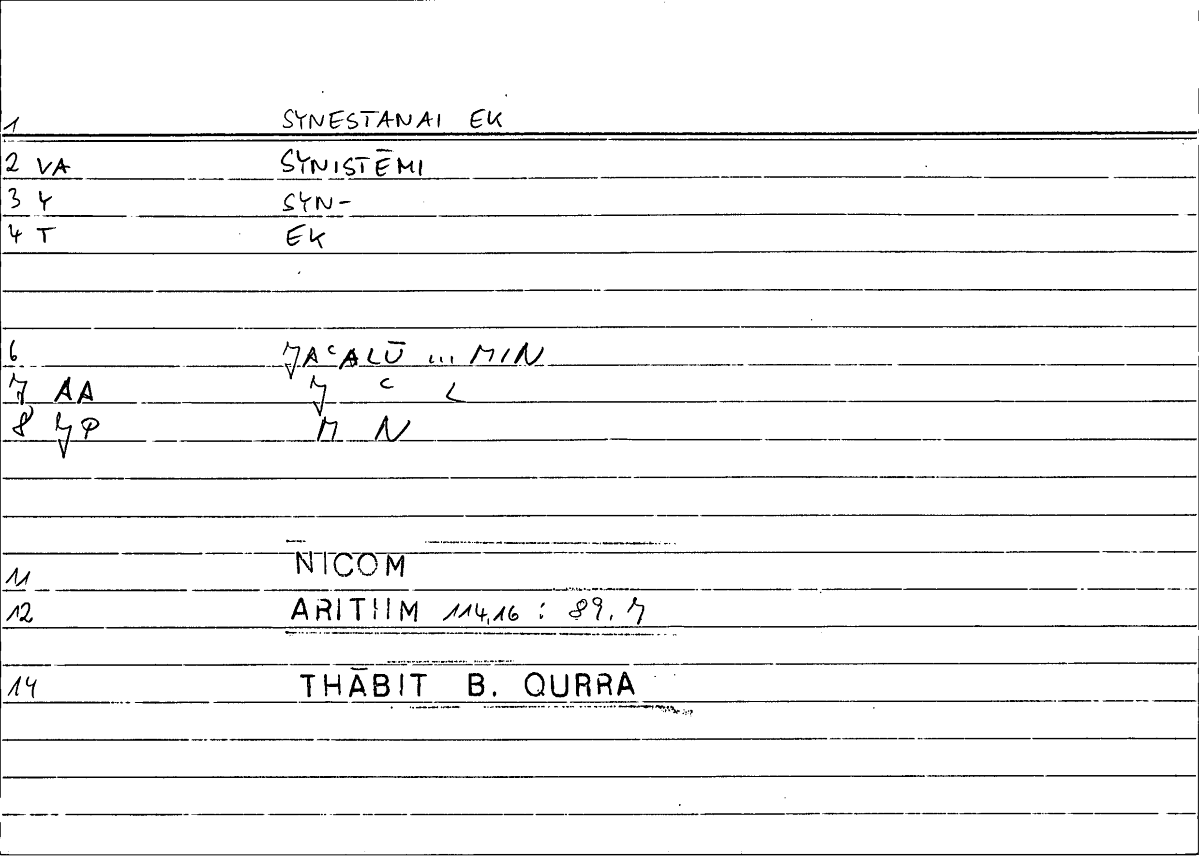 1 SYNESTANAI EK
2 VA SYNISTĒMI
3 Y SYN-
4 T EK
6 ǦAʿALŪ ... MIN
7 AA Ǧ ʿ L
8 ǦP M N
11 NICOM
12 ARITHM 114,16 : 89.7
14 THĀBIT B. QURRA